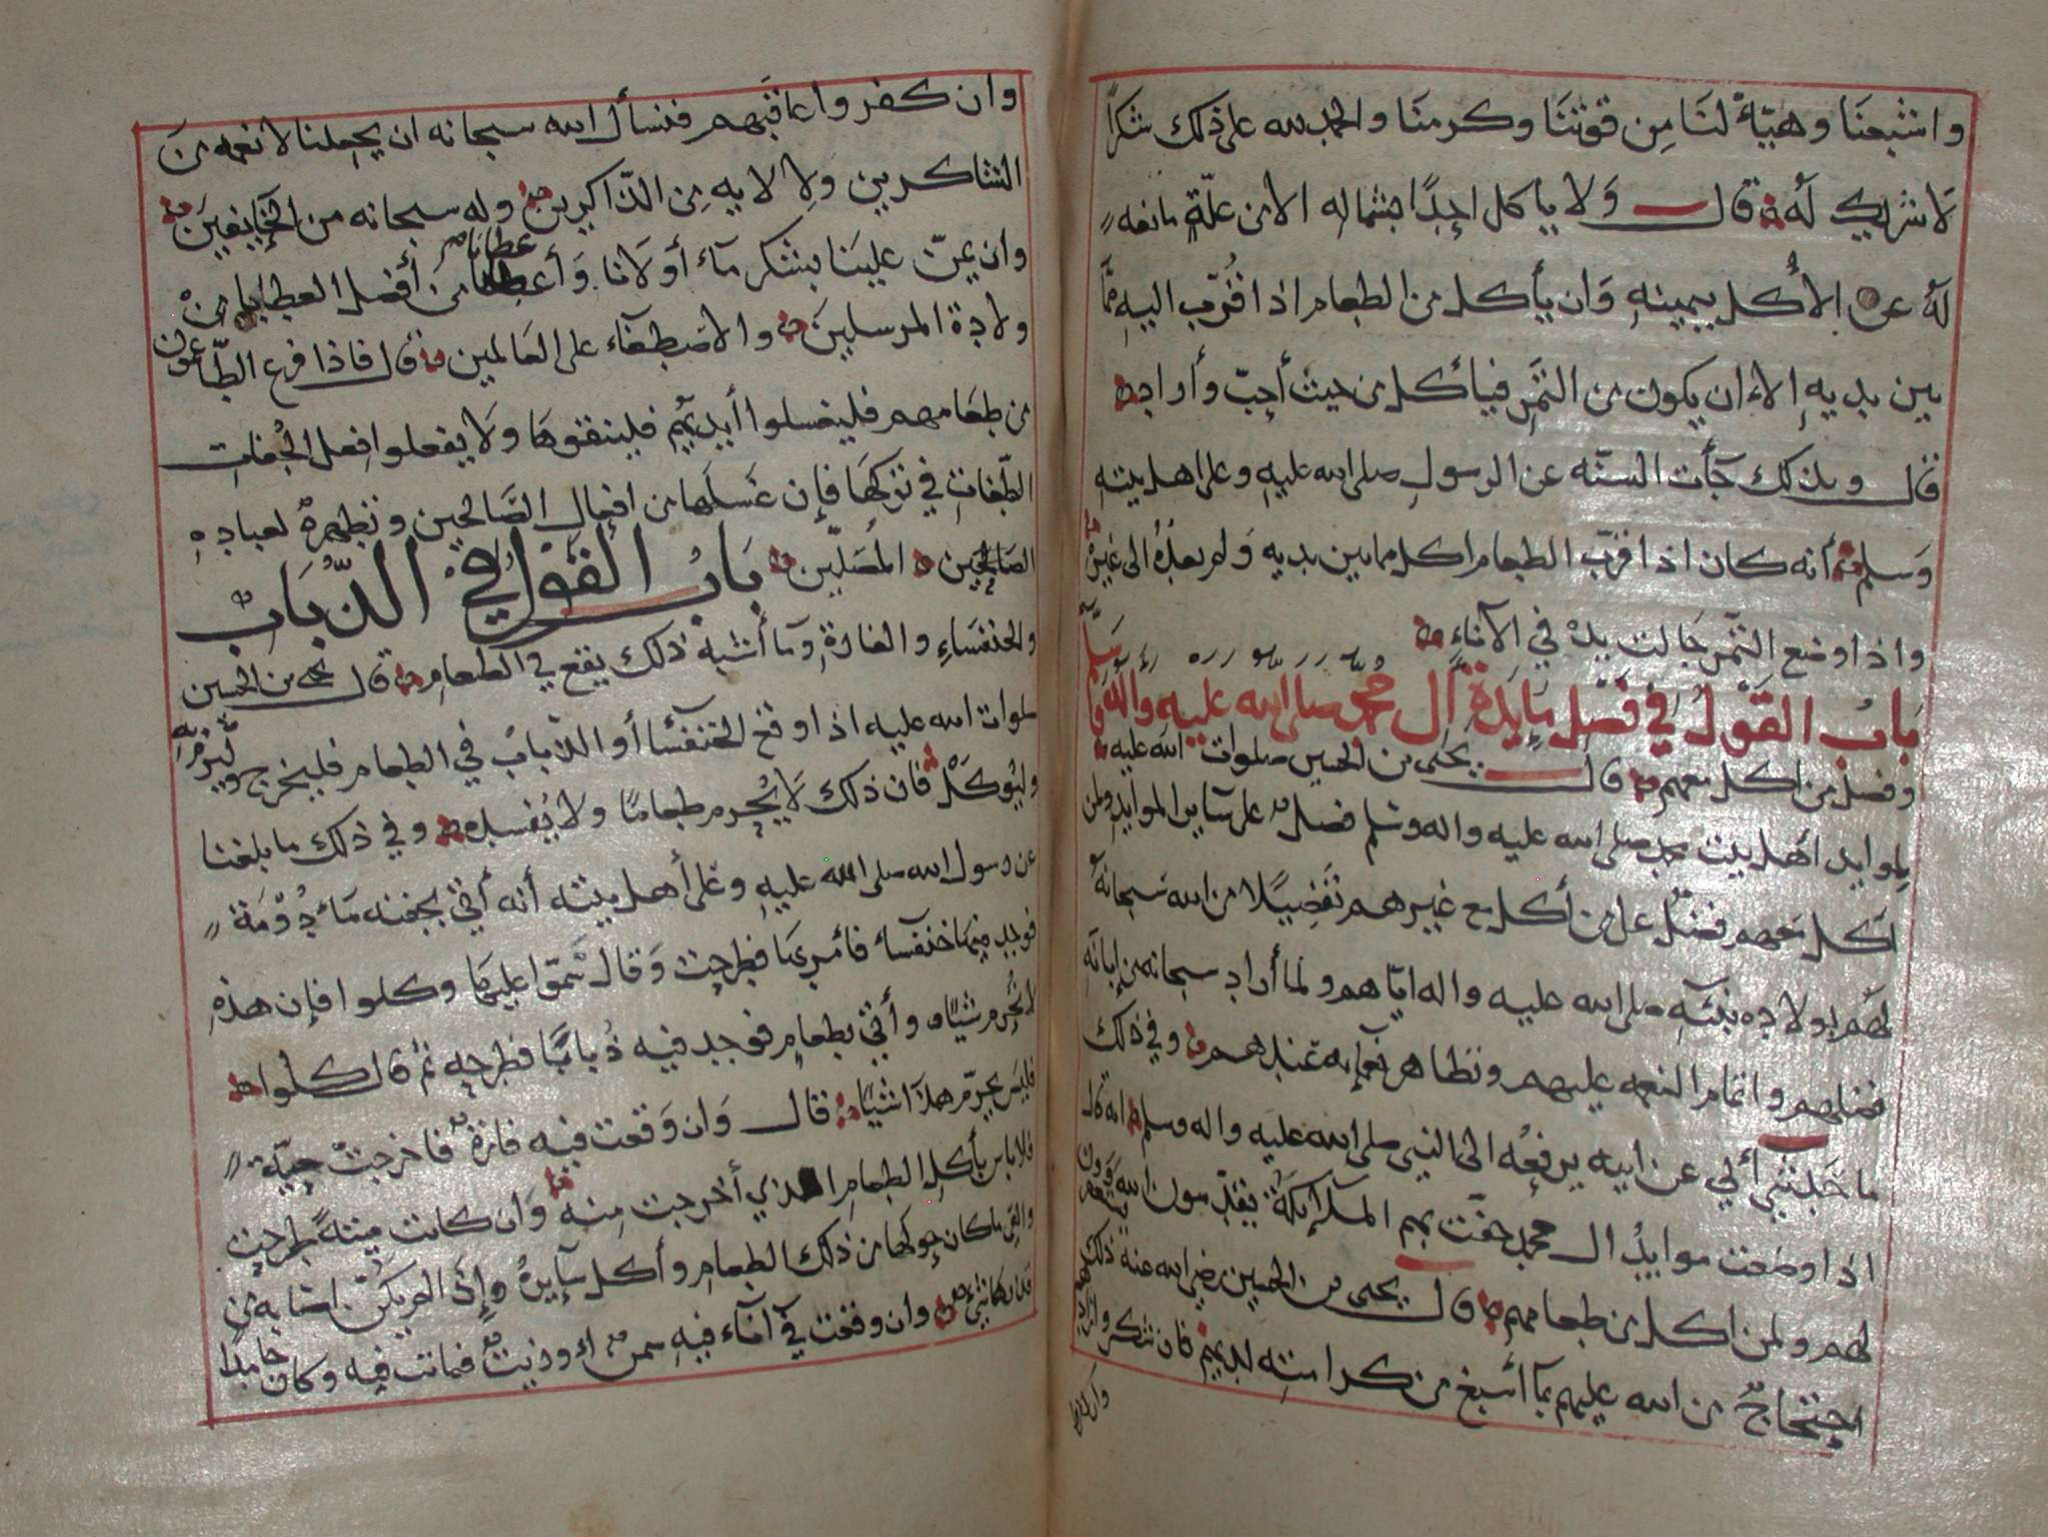 واشبعنا وهيأ لنا من قوتنا وكرمنا والحمد لله على ذلك شكرًا
لا شريك له قال ولا يأكل احدًا بشماله الا من علّةٍ مانعه
له عن الأكل بيمينهِ وَان يأكل من الطعام اذا قُرّب اليهِ ممَّا
بين يديهِ إلا ان يكون من التمْر فيأكل من حيث أحبّ وأراد
قال وبذلك جآت السنّه عن الرسول صلى الله عليهِ وعلى اهل بيته
وَسلم أنه كان اذا قرّب الطعام اكل مما بين يديه وَلم يعدهُ الى غيره
واذا وضع التّمر جالت يدهُ في الآناءِ
بَابُ القَوْلُ في فَضْل مَايدَة آل محمّد صلى الله عليه وآله وسَلّم
وفضل من اكل معهم قال يحيى بن الحسين صلوات الله عليه
لموايد اهل بيت محمد صلى الله عليه واله وسَلم فضلٌ على سآير الموايد ولمن
اكل مَعهم فضلٌ على من أكل مع غيرهم تفضيلًا من الله سبحانهُ
لهم بولاده نبيّهِ صلى الله عليه واله ايّاهم ولما أراد سبحانه من إبانَه
فضلهم واتمام النعمه عليهم وتظاهر نعمآيه عندهم وفي ذلك
ما حَدثني أبي عن ابيه يرفعُه الى النبي صلى الله عليه واله وسلم انه قال
اذا وضعت موايدُ ال محمد حفّت بهم الملآيكةُ يقدّسون الله ويستغفرون
لهم ولمن اكل من طعامهم قال يحيى بن الحسين رضي الله عنه ذلك
احتجاجٌ من الله عليهم بمآ أسبغ من كرامتهِ لديهم فان شكروا زادهم
وان كفروا
وان كفروا عاقبهم فنسأل الله سبحانه ان يجعلنا لانعمه منَ
الشاكرين وَلِالايه مِن الذّاكرين وله سبحانه من الخآيفينَ
وان يمنّ علينَا بشكر مآ أولَانا وَأعطانا من أفضل العطايا من
ولادة المرسلينَ والاصطفآء على العَالمين قال فاذا فرغ الطّاعمون
من طعامهم فليغسلوا أيديهُم فلينقوهَا وَلا يفعلوا فِعل الجُفاتِ
الطّغاتِ في تركهَا فإن غَسلَها من افعال الصَّالحين وتطهرةٌ لعبادهِ
الصالحين المُصَلّين بَابُ القَوْلُ فِي الذُّبَابْ
والخنفسَاءِ والفارةِ وَمآ أشبهَ ذلك يقع في الطعامِ قال يحيى بن الحسين
صلوات الله عليه اذا وقع الخنفسآ أو الذبابُ في الطعام فليخرج وليُرمَ بهِ
وليُوكلْ فان ذلك لَا يُحرم طعامًا ولا يُفسده وفي ذلك ما بلغنا
عن رسول الله صلى الله عليهِ وعَلى أهل بيته أنه أتي بجفنه مَأدُوْمَة
فوجد فيهَا خنفسآء فأمر بهَا فطرحت وَقال سَمّوا عليهَا وكلوا فإن هذهِ
لا تُحرم شيئًا وأتي بطعامٍ فوجد فيه ذُبابًا فطرحه ثم قال كلوا
فليس يحرّم هذا شيئًا قال وَان وَقعت فيه فارة فاخرجتْ حيّة
فلا باس بأكل الطعام الذي أخرجت مِنه وَان كانت ميتةً طرحت
والقي ما كان حولها من ذلك الطعام وأكل سآيرهُ وإذا لم يكن أصَابه من
قذرها شيءٌ وان وقعت في آنآء فيهِ سمنٌ او زيت فماتت فيه وكان جامدًا